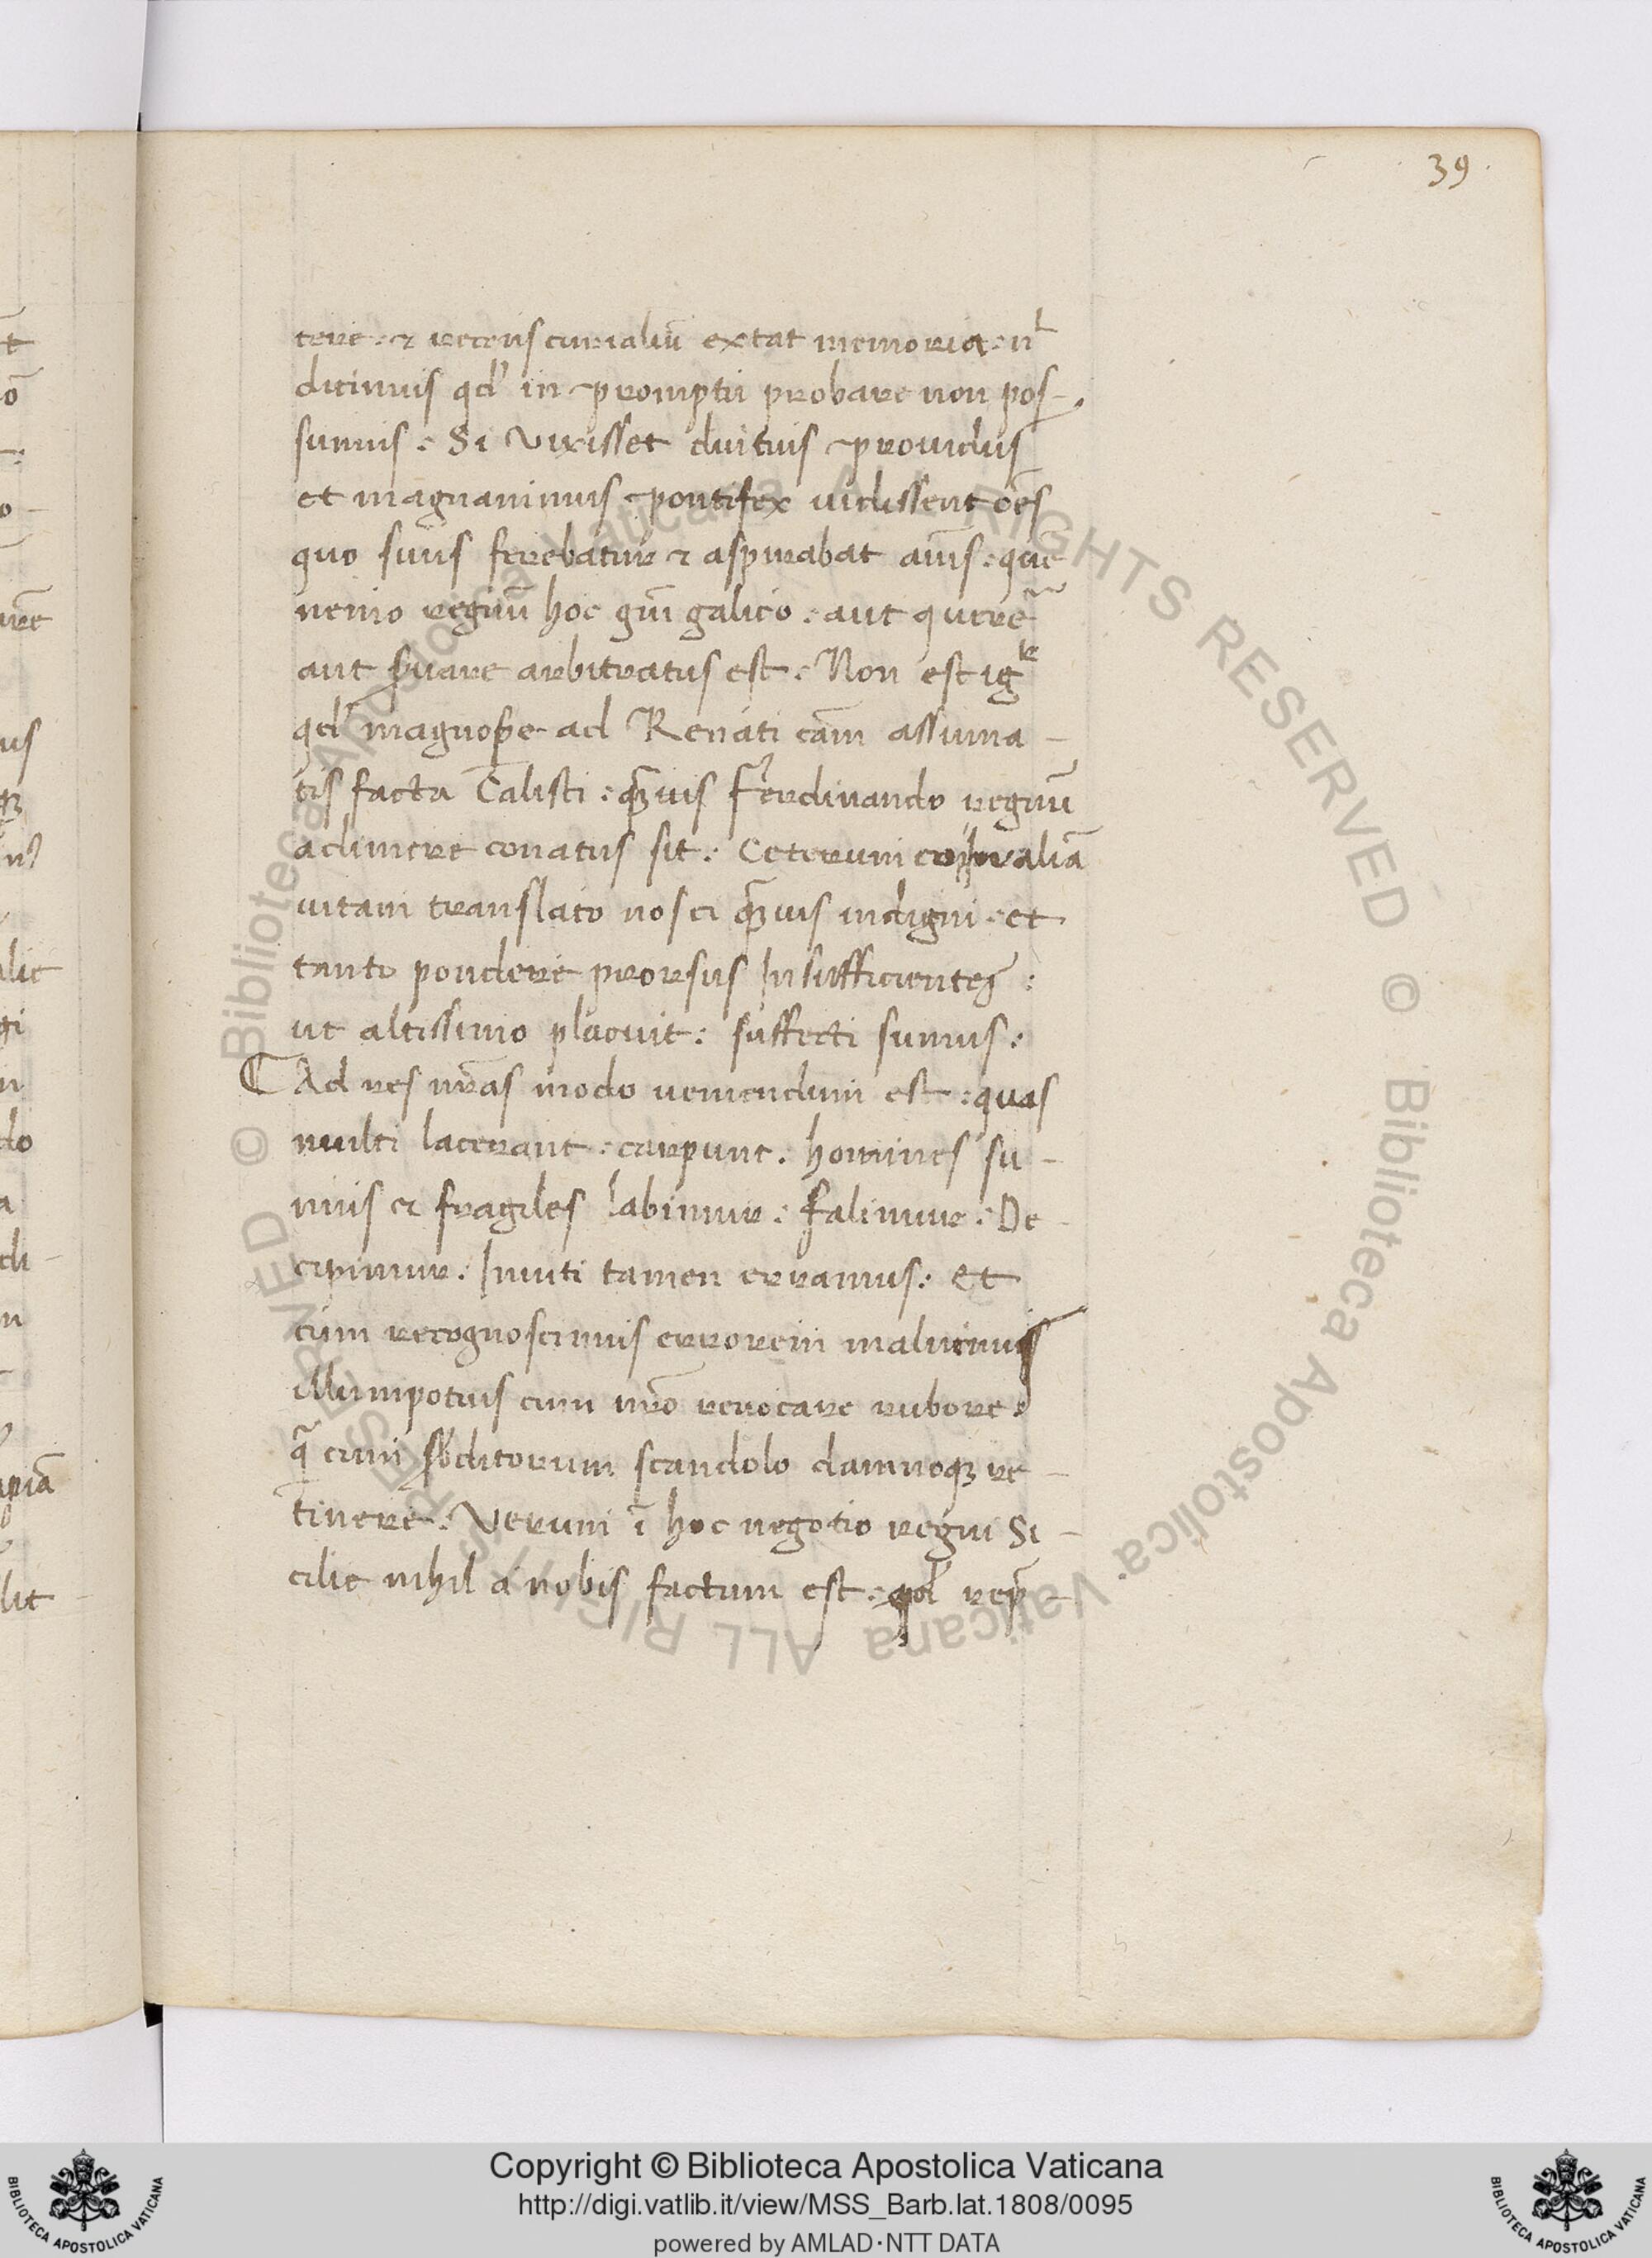 39
tere · & recens curialiū extat memoria · nˡ
dicimus qd' in promptu probare non pos-
sumus : Si vixisset diutius providus
et magnanimus pontifex vidissent oēs
quo suus ferebatur & aspirabat aīus : que
nemo regnū hoc gñi galico : aut querē
aut suare arbitratus est : Non est ig
qd' magnope ad Renati cām assuma-
tis facta Calisti : qȝvis Ferdinando regnū
adimere conatus sit : Ceterum
vitam translato nos ei qȝvis indigni · et
tanto pondere prorsus Insufficientes :
ut altissimo placuit : suffecti sumus :
Ad res nrās modo veniendum est : quas
multi lacerant : carpunt . homines su-
mus et fragiles labimur : falimur : De-
cipimur : Inviti tamen erramus : et
cum recognoscimus errorem malumus
illum potius cum nrō revocare rubore
qᵃ cum sbditorum scandolo damnoqȝ re-
tinere : Verum ī hoc negotio regni Si-
cilie nihil a nobis factum est : qd' rep̄-
Copyright © Biblioteca Apostolica Vaticana
http://digi.vatlib.it/view/MSS_Barb.lat.1808/0095
powered by AMLAD·NTT DATA
© Biblioteca Apostolica Vaticana ALL RIGHTS RESERVED © Biblioteca Apostolica Vaticana ALL RIGHTS RESERVED
BIBLIOTECA APOSTOLICA VATICANA
BIBLIOTECA APOSTOLICA VATICANA